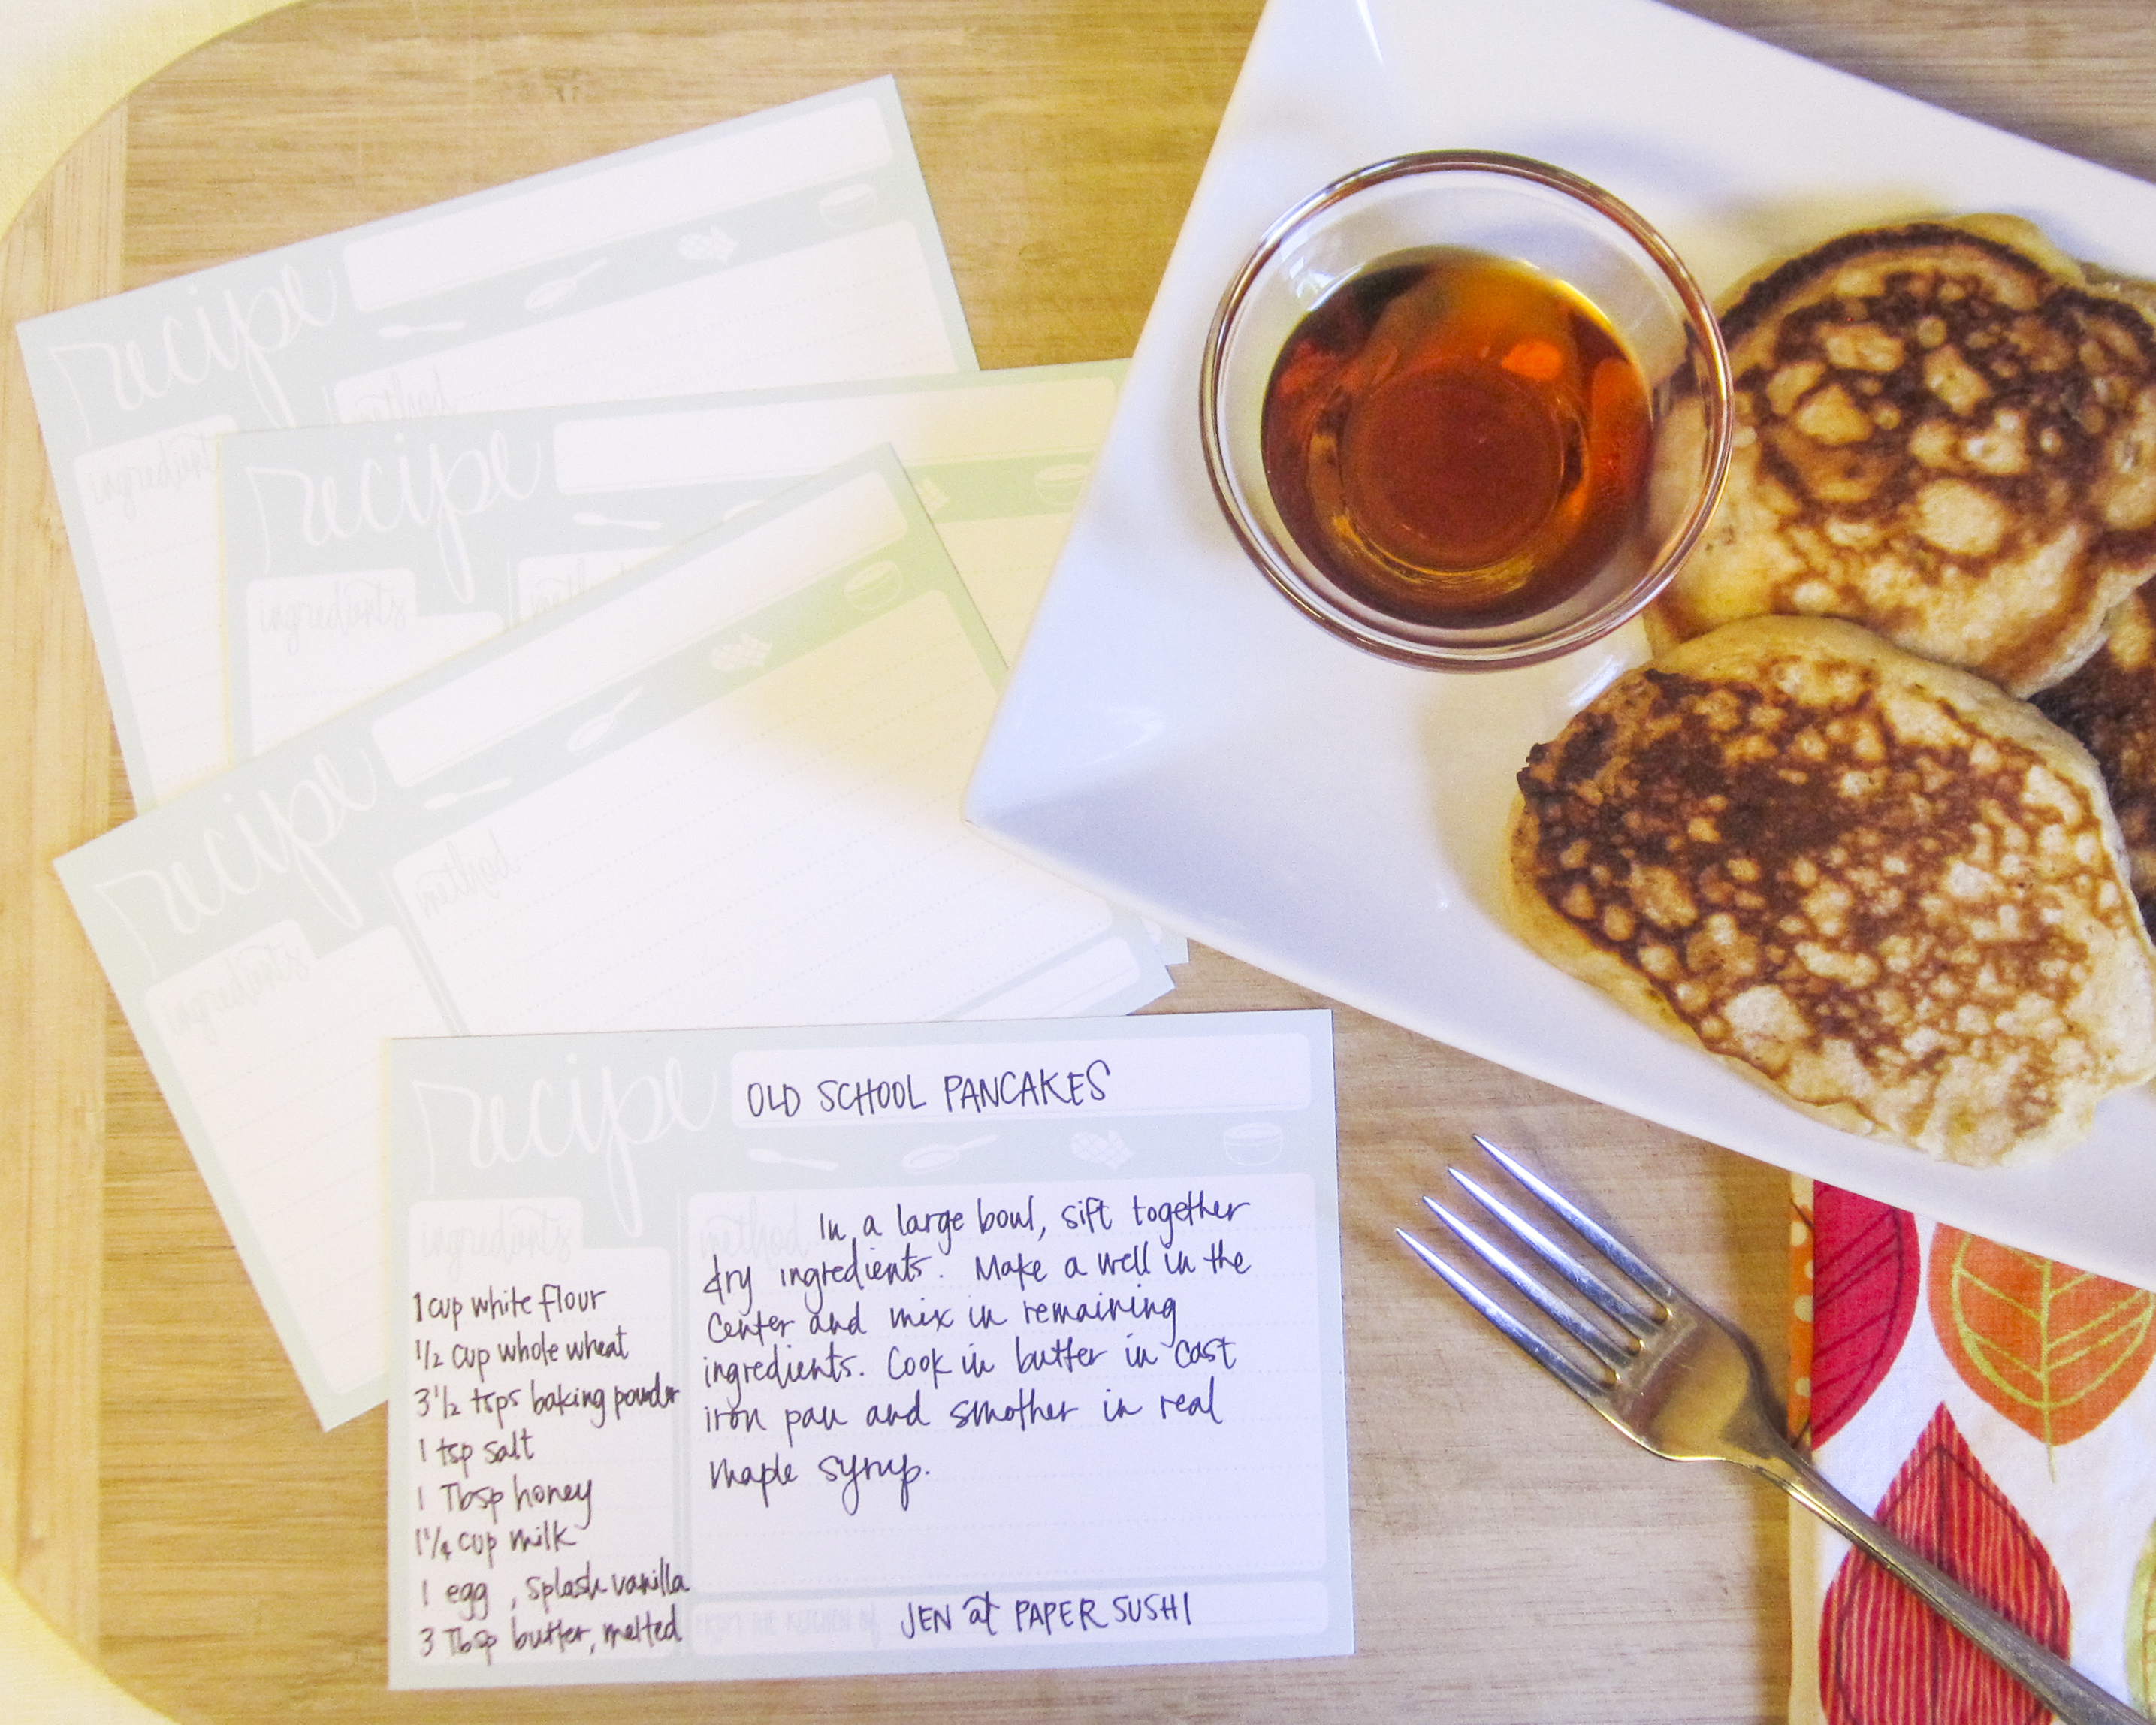 recipe
method
ingredients
recipe
ingredients
recipe
method
ingredients
recipe
OLD SCHOOL PANCAKES
ingredients
1 cup white flour
1/2 cup whole wheat
3 1/2 tsps baking powder
1 tsp salt
1 Tbsp honey
1 1/4 cup milk
1 egg, splash vanilla
3 Tbsp butter, melted
method
In a large bowl, sift together
dry ingredients. Make a well in the
center and mix in remaining
ingredients. Cook in butter in cast
iron pan and smother in real
maple syrup.
FROM THE KITCHEN OF JEN at PAPER SUSHI